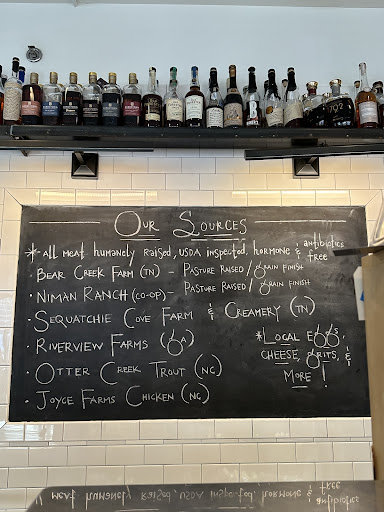 OUR SOURCES
* ALL MEAT humanely RAISED, USDA INSPECTED, HORMONE & antibiotics FREE
· BEAR CREEK FARM (TN) - PASTURE RAISED / GRAIN FINISH
· NIMAN RANCH (CO-OP) - PASTURE RAISED / GRAIN FINISH
· SEQUATCHIE COVE FARM & CREAMERY (TN)
· RIVERVIEW FARMS (GA)
· OTTER CREEK TROUT (NC)
· JOYCE FARMS CHICKEN (NC)
* LOCAL EGGS,
CHEESE, GRITS, &
MORE!